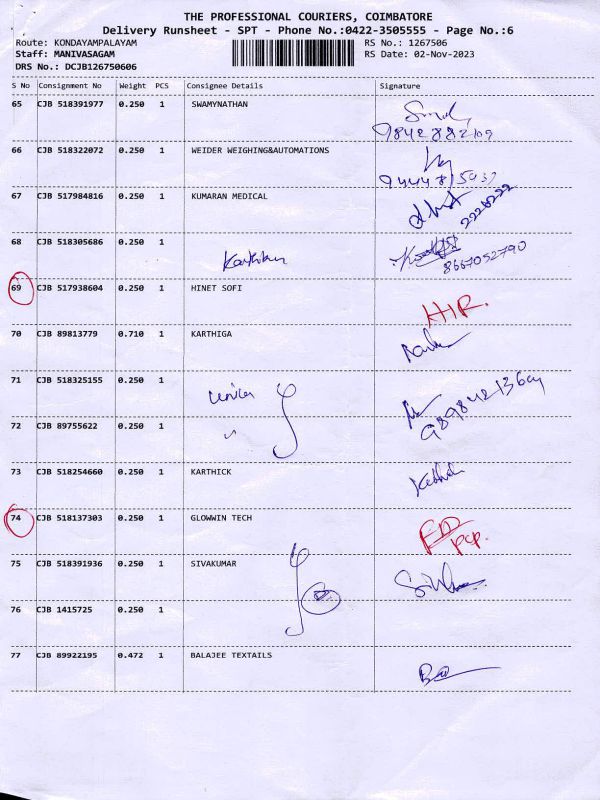 THE PROFESSIONAL COURIERS, COIMBATORE
Delivery Runsheet - SPT - Phone No.:0422-3505555 - Page No.:6
Route: KONDAYAMPALAYAM RS No.: 1267506
Staff: MANIVASAGAM RS Date: 02-Nov-2023
DRS No.: DCJB126750606
S No Consignment No Weight PCS Consignee Details Signature
65 CJB 518391977 0.250 1 SWAMYNATHAN
66 CJB 518322072 0.250 1 WEIDER WEIGHING&AUTOMATIONS
67 CJB 517984816 0.250 1 KUMARAN MEDICAL
68 CJB 518305686 0.250 1
8667052790
69 CJB 517938604 0.250 1 HINET SOFI
70 CJB 89813779 0.710 1 KARTHIGA
71 CJB 518325155 0.250 1
72 CJB 89755622 0.250 1
73 CJB 518254660 0.250 1 KARTHICK
74 CJB 518137303 0.250 1 GLOWWIN TECH
75 CJB 518391936 0.250 1 SIVAKUMAR
76 CJB 1415725 0.250 1
77 CJB 89922195 0.472 1 BALAJEE TEXTAILS